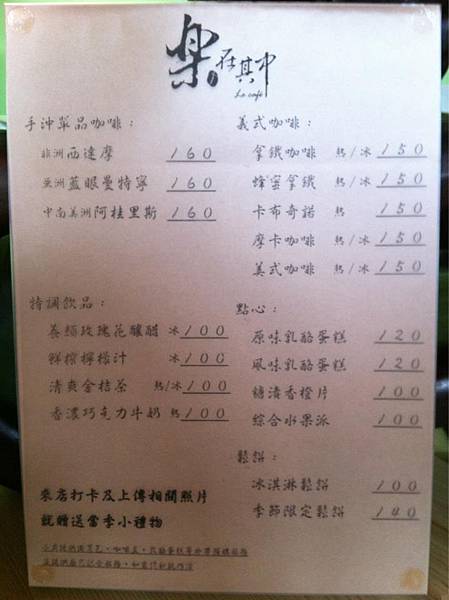 樂在其中
Le café
手沖單品咖啡：
非洲 西達摩 160
亞洲 藍眼曼特寧 160
中南美洲 阿桂里斯 160
義式咖啡：
拿鐵咖啡 熱/冰 150
蜂蜜拿鐵 熱/冰 150
卡布奇諾 熱 150
摩卡咖啡 熱/冰 150
美式咖啡 熱/冰 150
特調飲品：
養顏玫瑰花釀醋 冰 100
鮮榨檸檬汁 冰 100
清爽金桔茶 熱/冰 100
香濃巧克力牛奶 熱 100
點心：
原味乳酪蛋糕 120
風味乳酪蛋糕 120
糖漬香橙片 100
綜合水果派 100
鬆餅：
冰淇淋鬆餅 100
季節限定鬆餅 140
來店打卡及上傳相關照片
就贈送當季小禮物